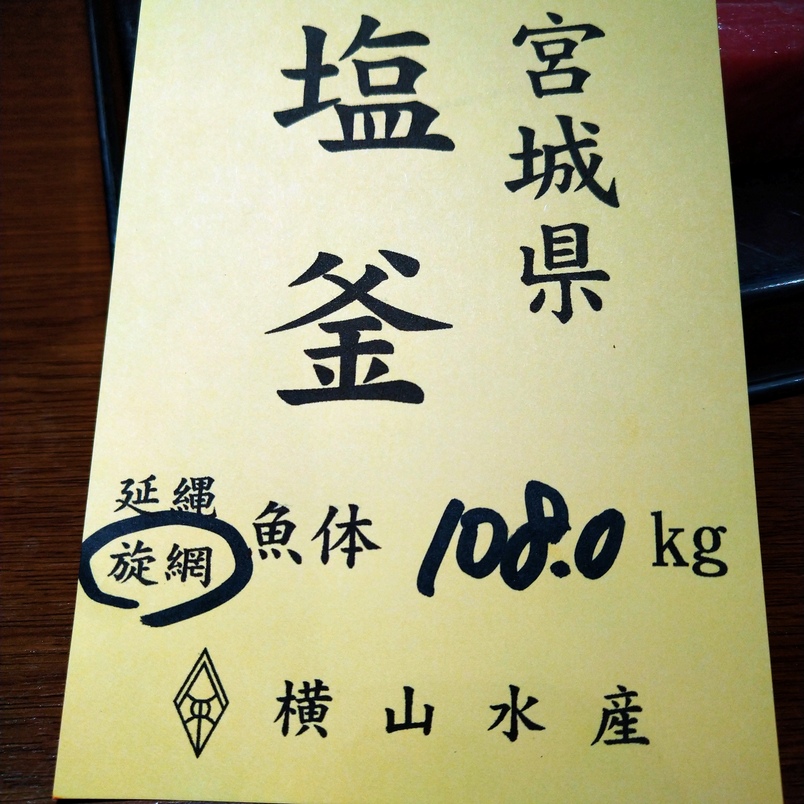 宮城県
塩釜
延縄
旋網
魚体 108.0 kg
横山水産